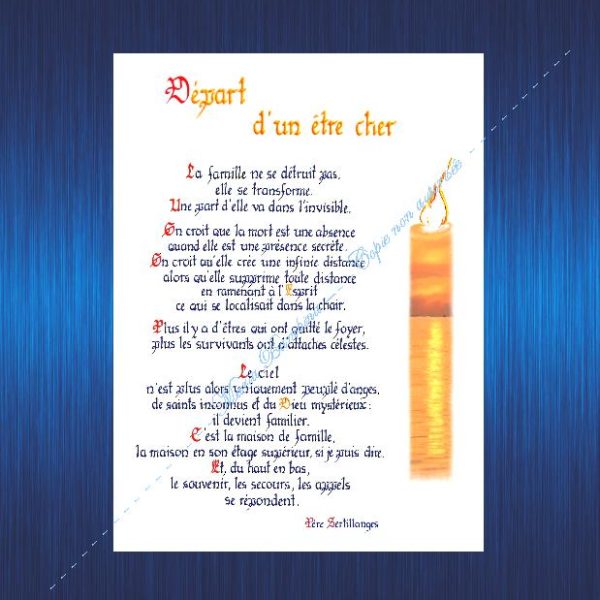 Départ
d'un être cher
La famille ne se détruit pas,
elle se transforme.
Une part d'elle va dans l'invisible.
On croit que la mort est une absence
quand elle est une présence secrète.
On croit qu'elle crée une infinie distance
alors qu'elle supprime toute distance
en ramenant à l'Esprit
ce qui se localisait dans la chair.
Plus il y a d'êtres qui ont quitté le foyer,
plus les survivants ont d'attaches célestes.
Le ciel
n'est plus alors uniquement peuplé d'anges,
de saints inconnus et du Dieu mystérieux :
il devient familier.
C'est la maison de famille,
la maison en son étage supérieur, si je puis dire.
Et, du haut en bas,
le souvenir, les secours, les appels
se répondent.
Père Sertillanges
Copie non autorisée